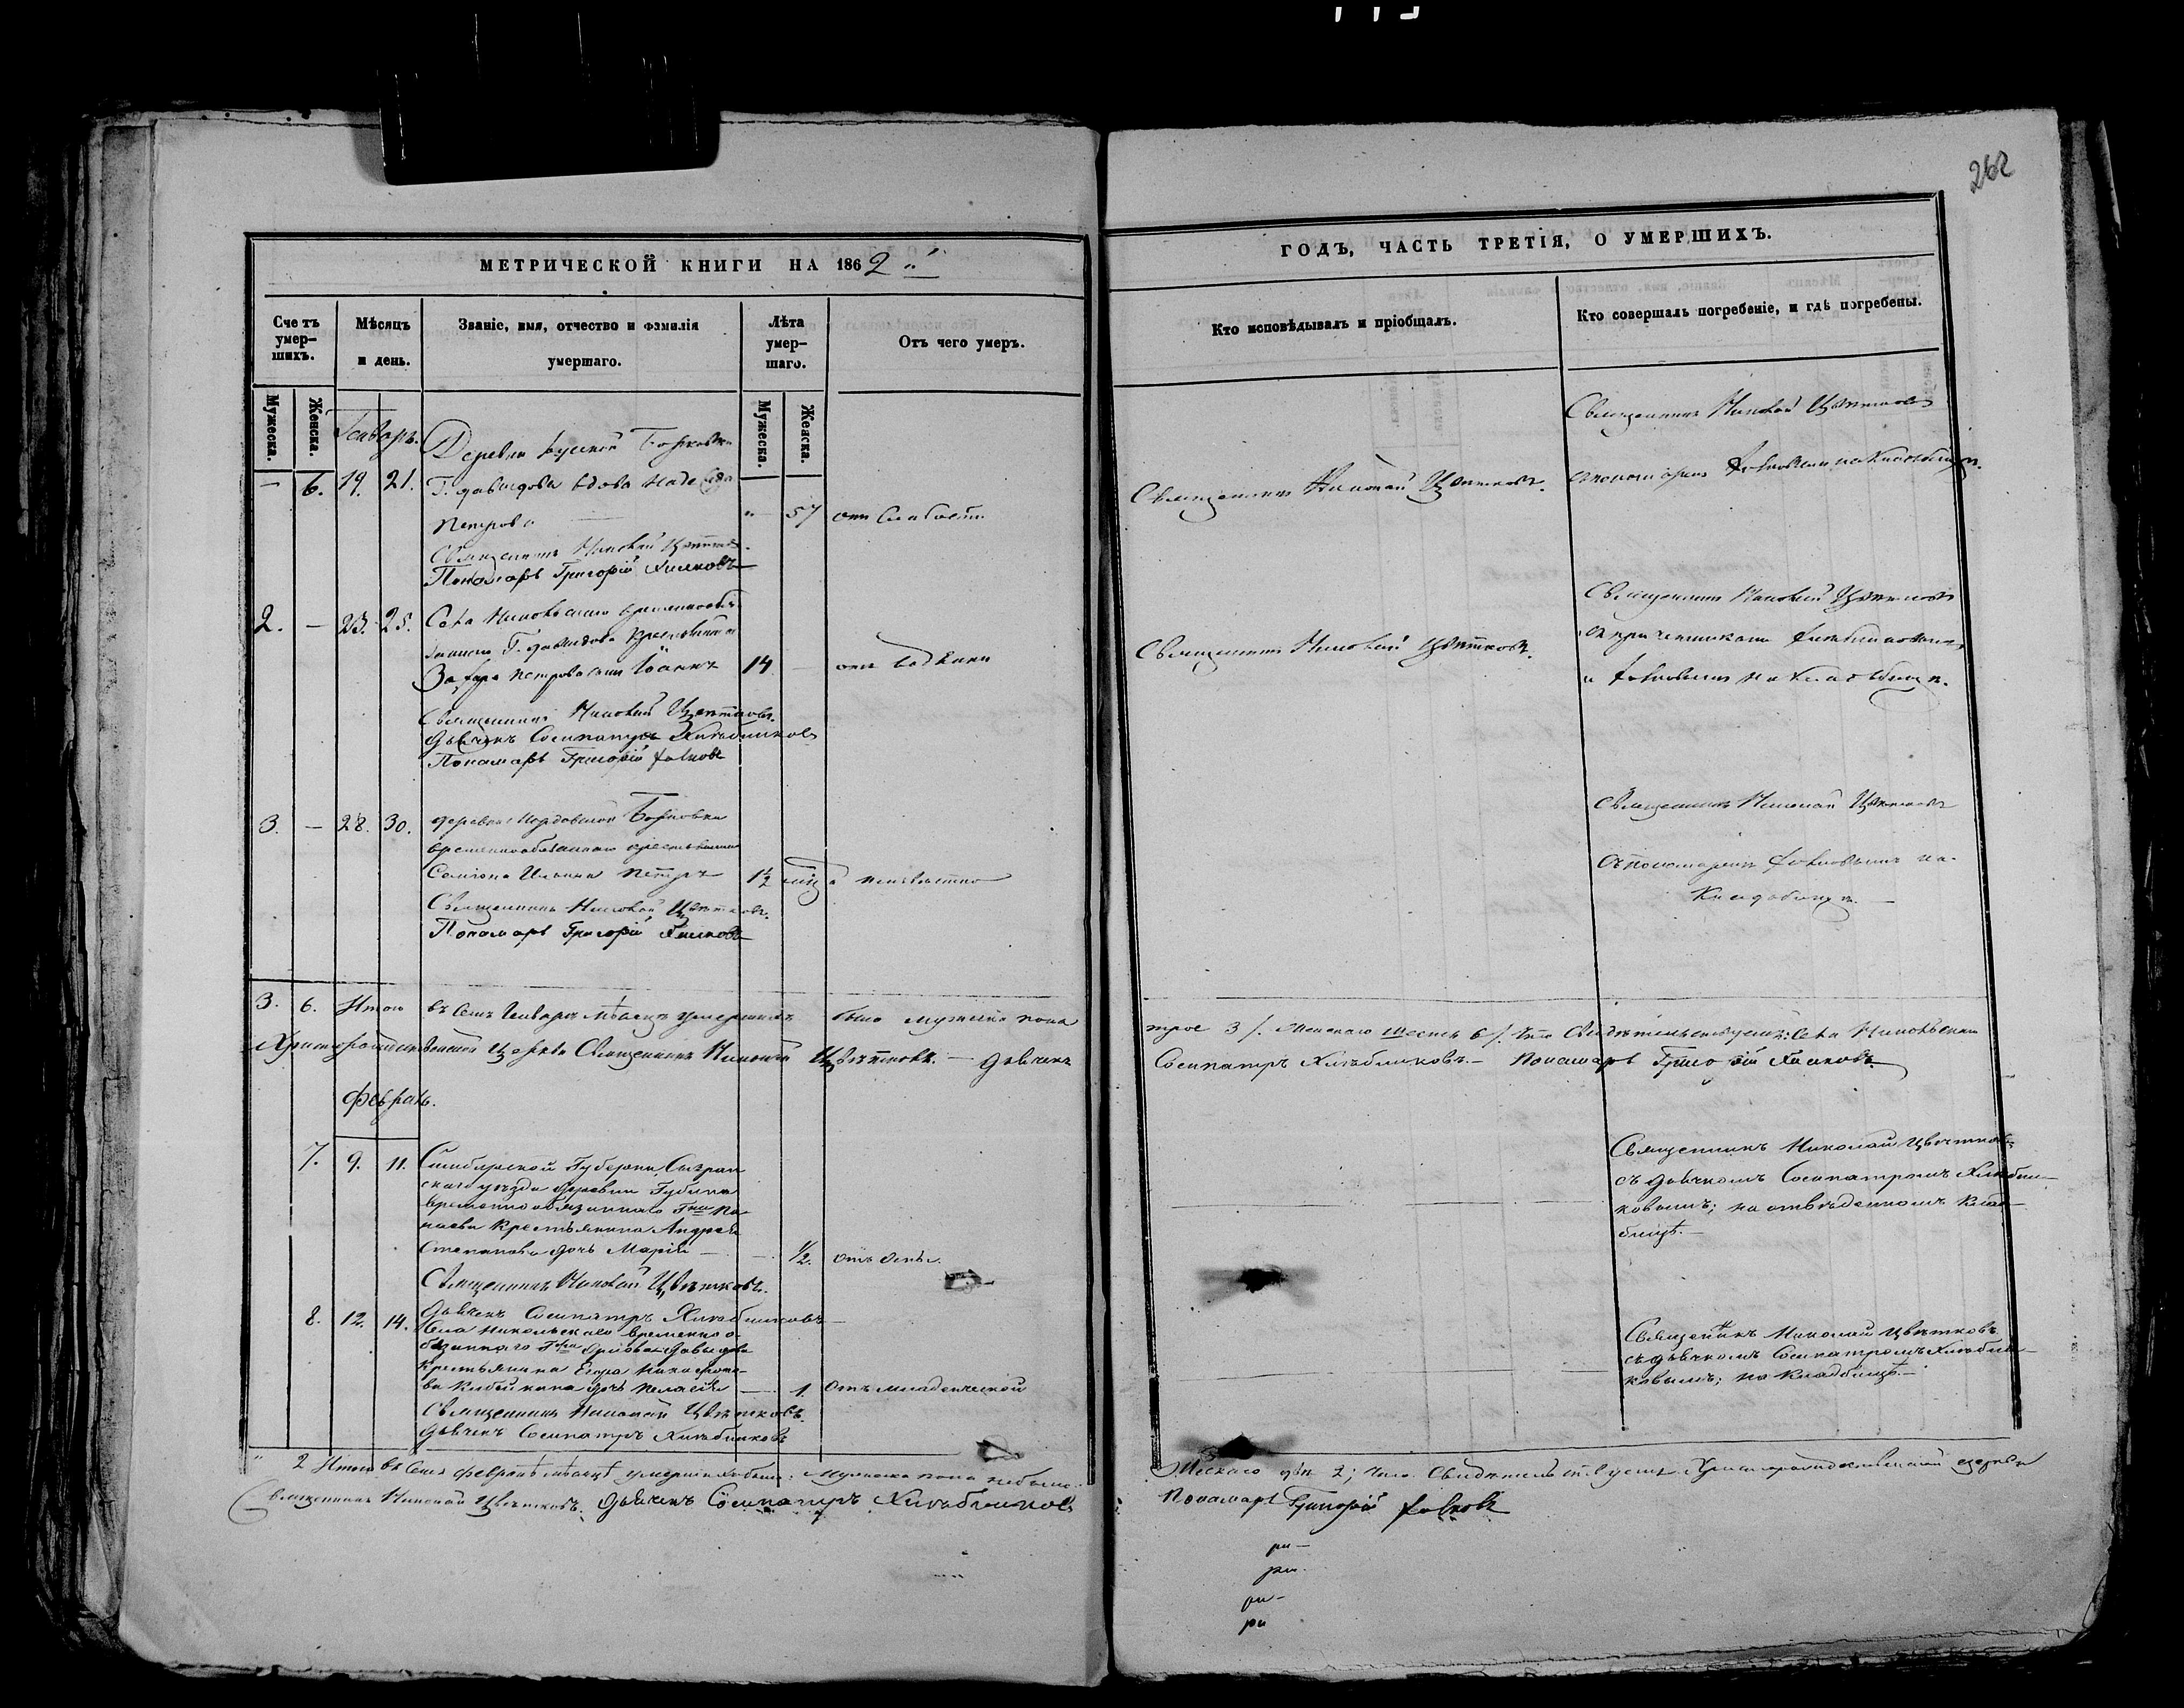 262
МЕТРИЧЕСКОЙ КНИГИ НА 1862
Счетъ умер-шихъ.
Мѣсяцъ и день.
Званіе, имя, отчество и фамилія умершаго.
Лѣта умер-шаго.
Отъ чего умеръ.
Мужеска.
Женска.
Мужеска.
Женска.
Январь.
Деревни Русской Борковки
6. 19. 21. Г. Давыдова вдова Надежда
Петрова 57 отъ слабости
Священникъ Николай Цвѣтковъ.
Пономарь Григорій
2. — 23. 25. Села Никольскаго временнообя-
заннаго Г. Давыдова крестьянина
Захара Петрова сынъ Іоаннъ 14 отъ водянки
Священникъ Николай Цвѣтковъ.
Дьячекъ Сосипатръ Хлѣбниковъ
Пономарь Григорій
3. — 28. 30. деревни Мордовской Борковки
временнообязаннаго крестьянина
Семіона Ильина Петръ 1½ неизвѣстно
Священникъ Николай Цвѣтковъ.
Пономарь Григорій
3. 6. Итого въ семъ Январѣ мѣсяцѣ умершихъ было мужеска пола
Христорождественской Церкви Священникъ Николай Цвѣтковъ. — Дьячекъ
Февраль.
7. 9. 11. Симбирской Губерніи Сызран-
скаго уѣзда деревни Губина
временнообязаннаго Гна
крестьянина Андрея
Степанова дочь Марія — ½. отъ оспы.
Священникъ Николай Цвѣтковъ.
Дьячекъ Сосипатръ Хлѣбниковъ
8. 12. 14. Села Никольскаго временно о-
бязаннаго Давыдова
крестьянина Егора
дочь Пелагія — 1. Отъ младенческой
Священникъ Николай Цвѣтковъ.
Дьячекъ Сосипатръ Хлѣбниковъ
2 Итого въ семъ Февралѣ мѣсяцѣ умершихъ было: Мужеска пола небыло
Священникъ Николай Цвѣтковъ. Дьячекъ Сосипатръ Хлѣбниковъ
ГОДЪ, ЧАСТЬ ТРЕТІЯ, О УМЕРШИХЪ.
Кто исповѣдывалъ и пріобщалъ.
Кто совершалъ погребеніе, и гдѣ погребены.
Священникъ Николай Цвѣтковъ
Священникъ Николай Цвѣтковъ.
съ пономаремъ на кладбищѣ.
Священникъ Николай Цвѣтковъ
Священникъ Николай Цвѣтковъ.
съ причетниками Хлѣбниковымъ
и на кладбищѣ.
Священникъ Николай Цвѣтковъ
съ пономаремъ на
кладбищѣ.
трое 3 /. Женскаго шесть 6 /. Въ томъ свидѣтельствуемъ: Села Никольскаго
Сосипатръ Хлѣбниковъ. — Пономарь Григорій
Священникъ Николай Цвѣтковъ
съ дьячкомъ Сосипатромъ Хлѣбни-
ковымъ; на отведенномъ клад-
бищѣ. —
Священникъ Николай Цвѣтковъ
съ дьячкомъ Сосипатромъ Хлѣбни-
ковымъ; на кладбищѣ. —
Женскаго двѣ 2; въ чемъ свидѣтельствуемъ Христорождественской церкви
Пономарь Григорій
ри —
ри.
ри -
ри